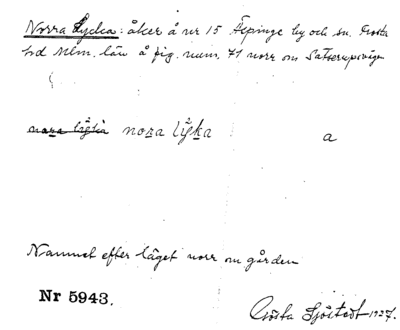 Norra Lycka: åker å nr 15 Äspinge by och sn. Frosta
hd Mlm. län å fig. num. 71 norr om Satserupsvägen
nora lyka a
Namnet efter läget norr om gården
Nr 5943.
Gösta Sjöstedt 1927.